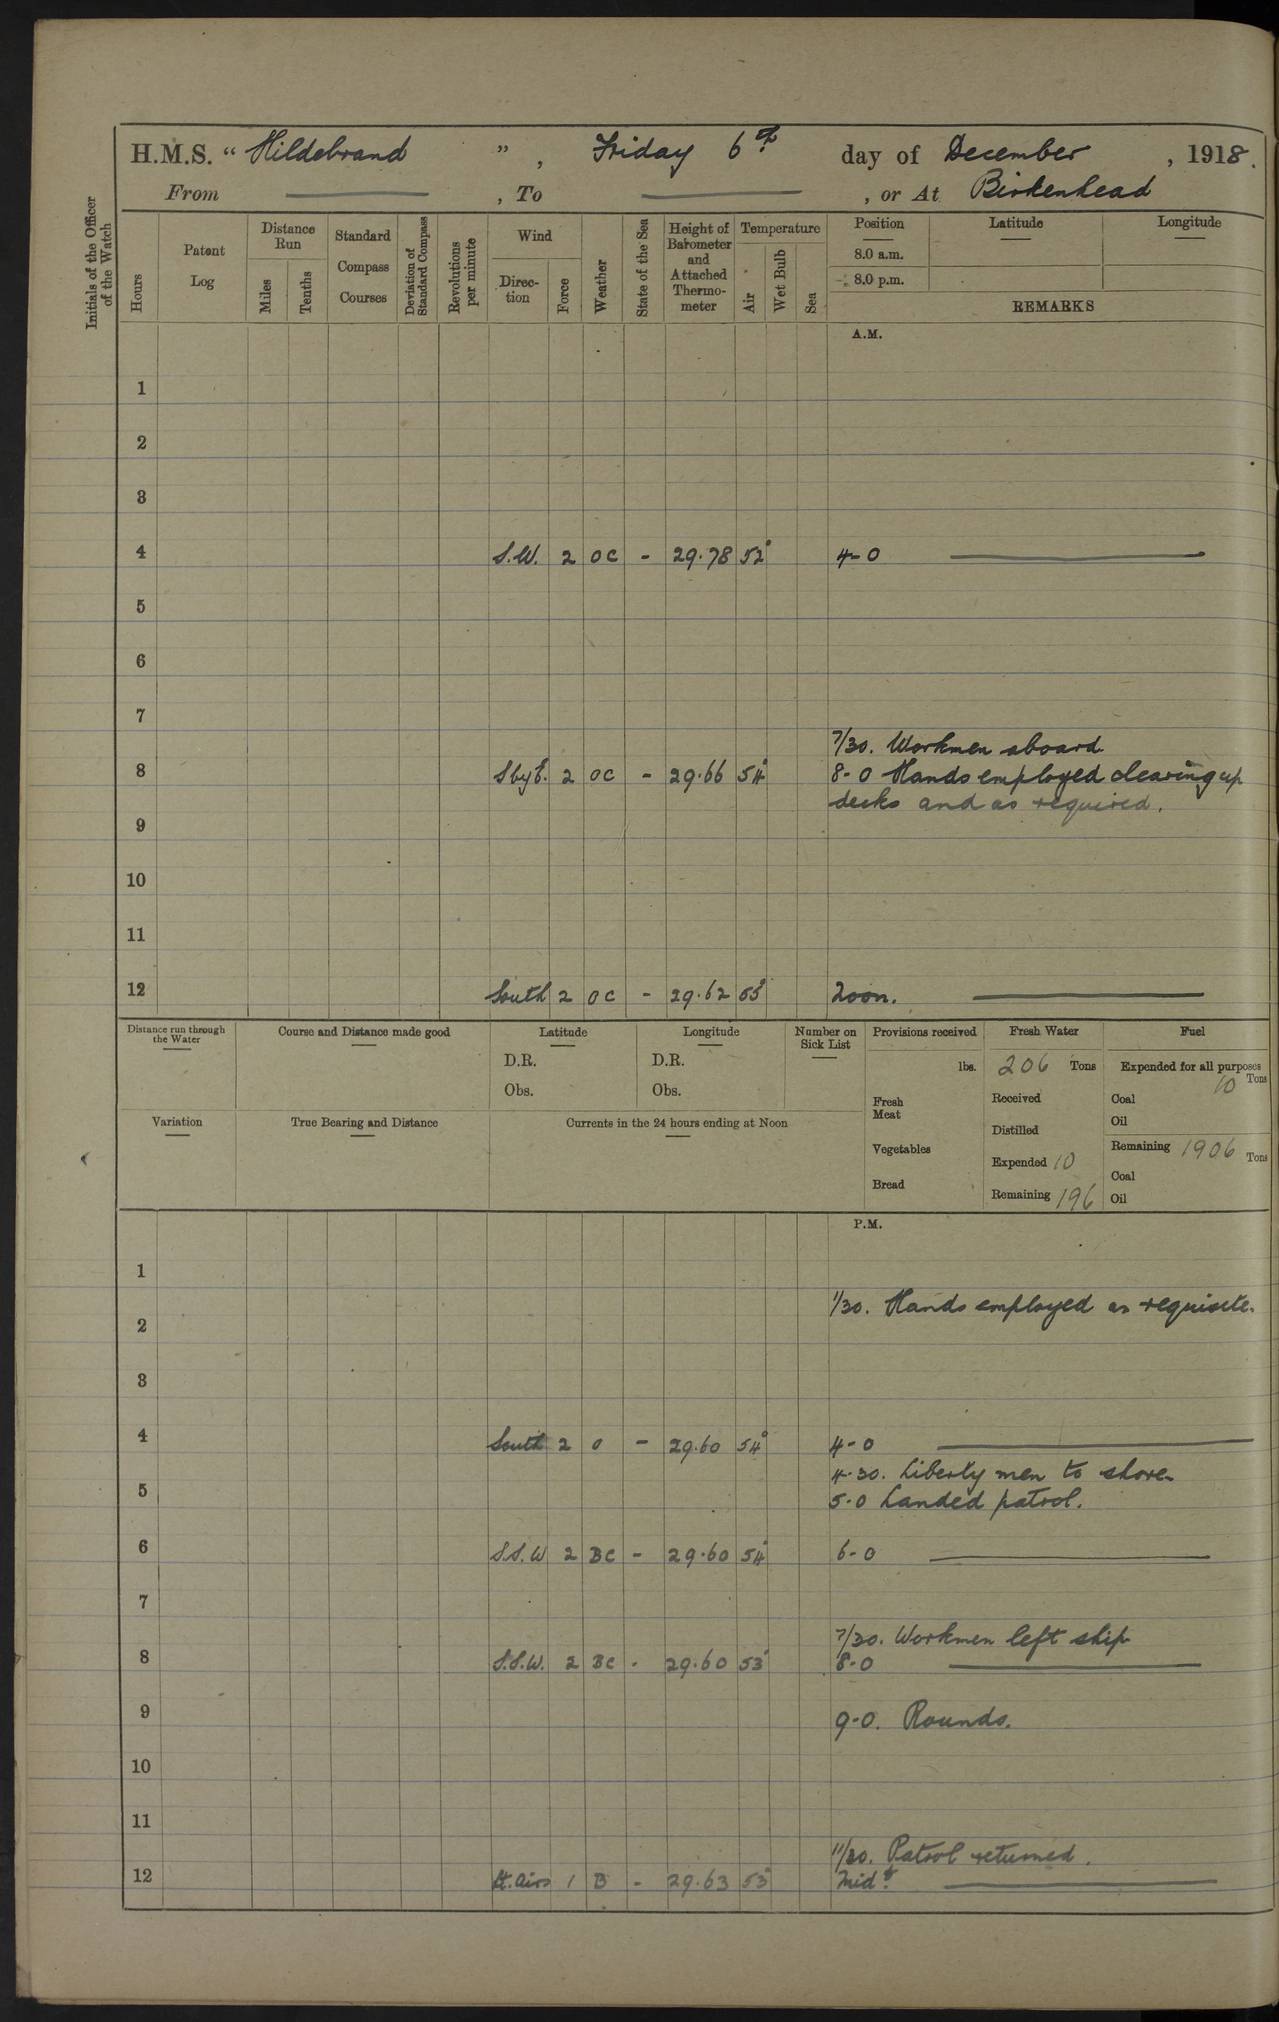 H.M.S. “ Hildebrand ” , Friday 6th day of December , 1918.
From — , To — , or At Birkenhead
Initials of the Officer of the Watch
Hours
Patent Log
Distance Run
Miles
Tenths
Standard Compass Courses
Deviation of Standard Compass
Revolutions per minute
Wind
Direc-tion
Force
Weather
State of the Sea
Height of Barometer and Attached Thermo-meter
Temperature
Air
Wet Bulb
Sea
Position
8.0 a.m.
8.0 p.m.
Latitude
Longitude
REMARKS
A.M.
1
2
3
4 S.W. 2 OC - 29.78 52° 4-0 —
5
6
7
7/30. Workmen aboard
8 S by E. 2 OC - 29.66 54° 8-0 Hands employed clearing up
decks and as required.
9
10
11
12 South 2 OC - 29.62 55° Noon. —
Distance run through the Water
Course and Distance made good
Latitude
D.R.
Obs.
Longitude
D.R.
Obs.
Number on Sick List
Variation
True Bearing and Distance
Currents in the 24 hours ending at Noon
Provisions received
lbs.
Fresh Meat
Vegetables
Bread
Fresh Water
206 Tons
Received
Distilled
Expended 10
Remaining 196
Fuel
Expended for all purposes
10 Tons
Coal
Oil
Remaining 1906 Tons
Coal
Oil
P.M.
1
1/30. Hands employed as requisite.
2
3
4 South 2 O - 29.60 54° 4-0 —
4-30. Liberty men to shore.
5 5-0 Landed patrol.
6 S.S.W 2 BC - 29.60 54° 6-0 —
7
7/30. Workmen left ship
8 S.S.W. 2 BC - 29.60 53° 8-0 —
9 9-0. Rounds.
10
11
11/30. Patrol returned.
12 Lt. airs 1 B - 29.63 53° Midt. —